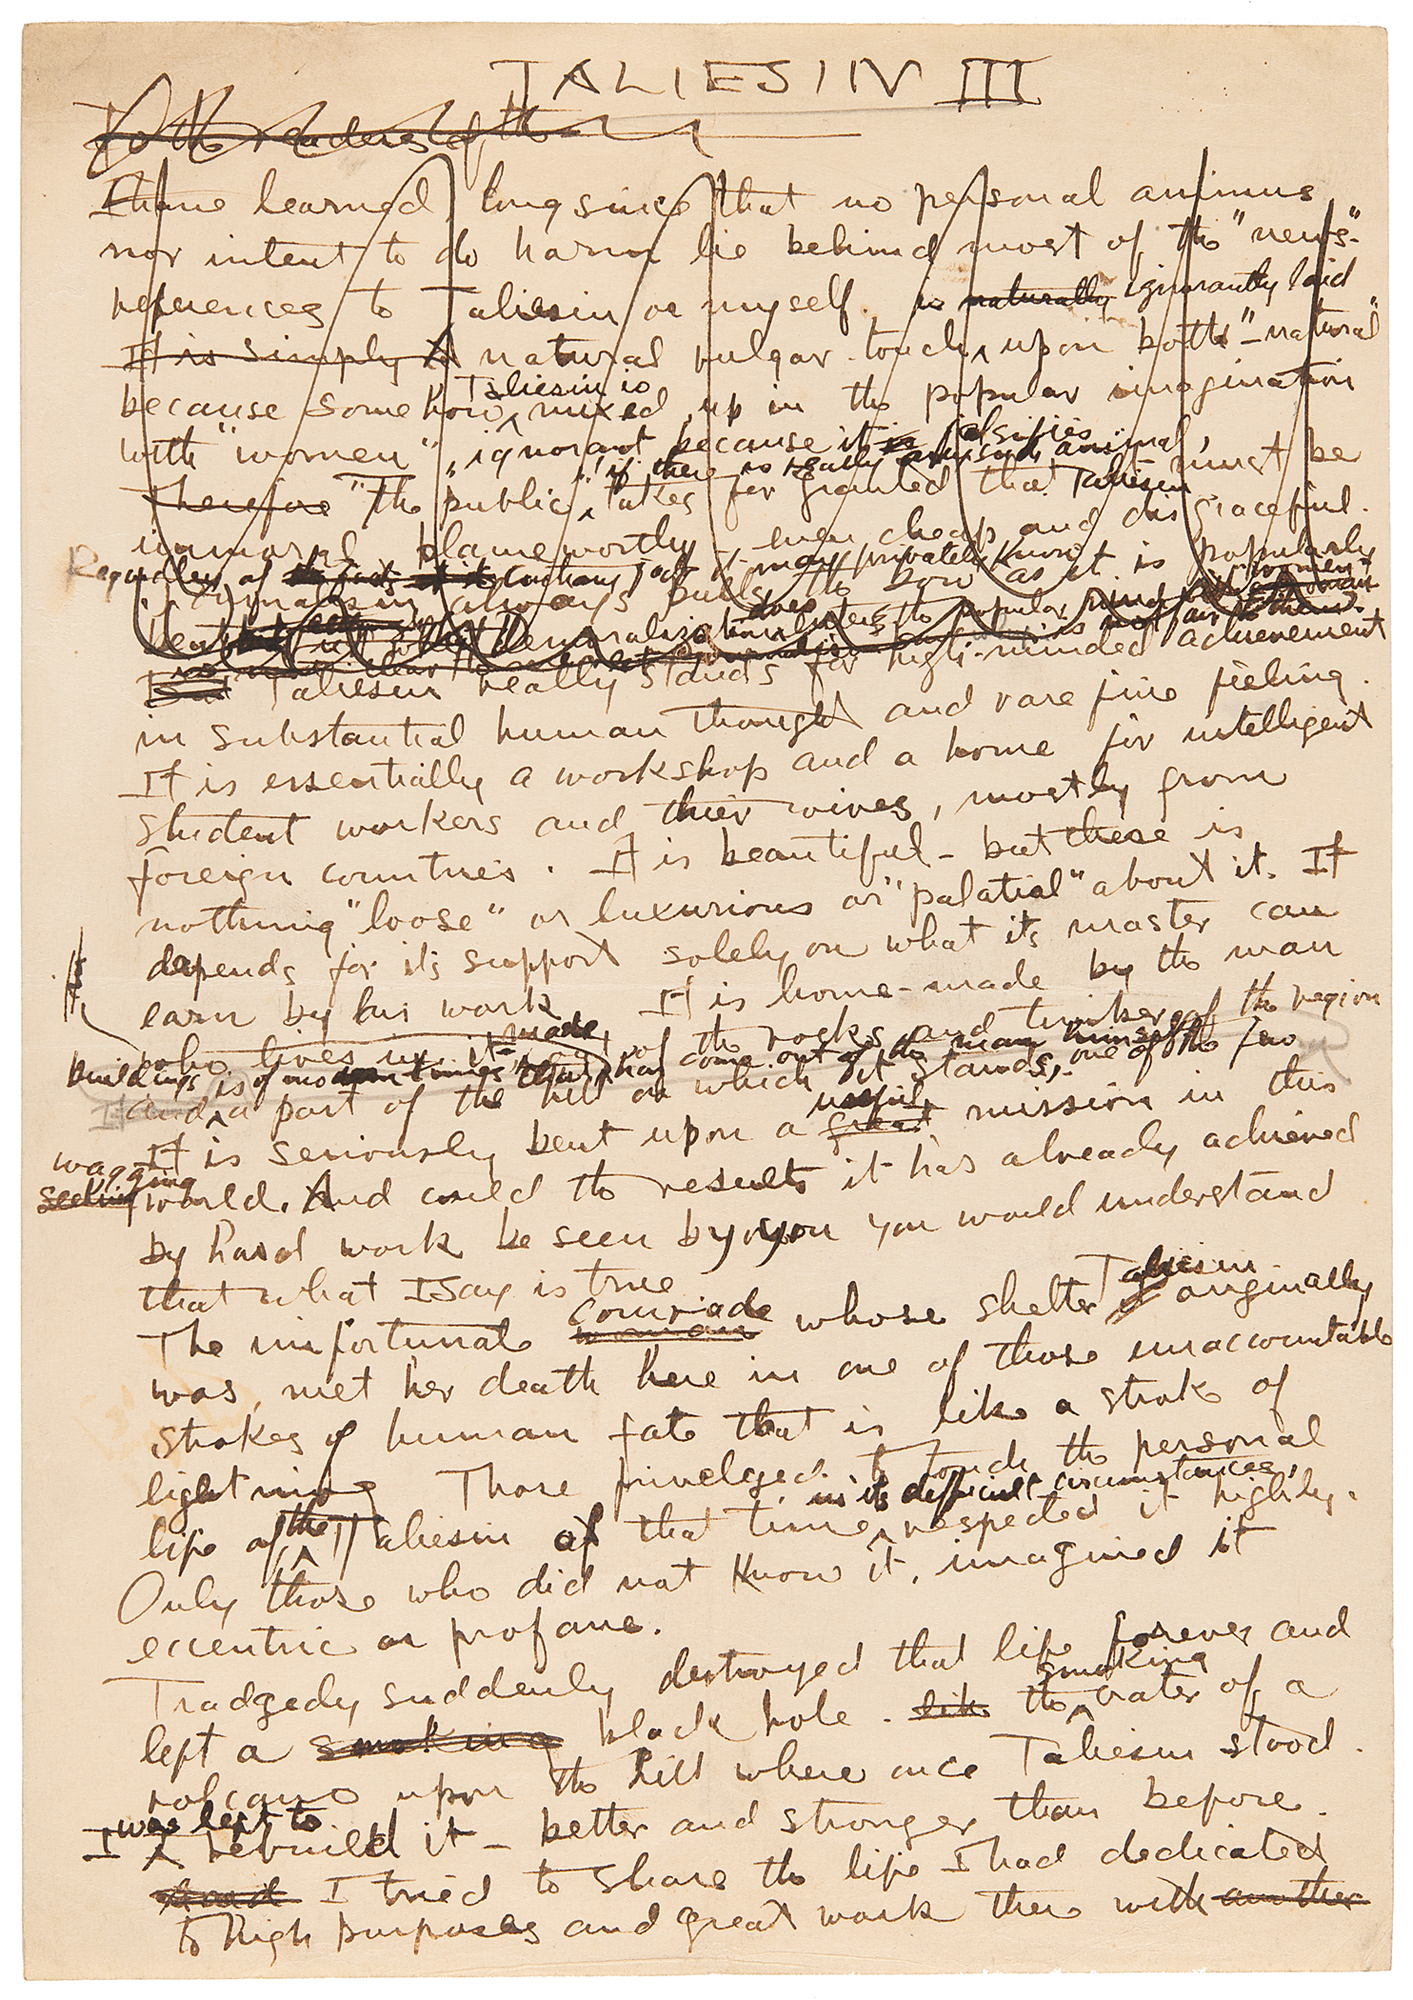 TALIESIN III
To the readers of the
I have learned long since that no personal animus
nor intent to do harm lie behind most of the "news"-
references to Taliesin or myself. is naturally ignorantly laid
It is simply A natural vulgar touch, upon both "natural"
Taliesin is
because somehow mixed up in the popular imagination
with "women", ignorant because it is falsifies
if there is really any such animal,
Therefore "The public", takes for granted that Taliesin must be
immoral, blameworthy, even cheap and disgraceful.
Regardless of the fact contrary fact it may privately know
always pulls the bow as it is popularly
does
Taliesin really stands for high-minded achievement
in substantial human thought and rare fine feeling.
It is essentially a workshop and a home for intelligent
student workers and thier wives, mostly from
foreign countries. It is beautiful - but there is
nothing "loose" or luxurious or "palatial" about it. It
depends for its support solely on what its master can
earn by his work. It is home-made by the man
who lives in it - made of the rocks and timber of the region
buildings of modern times that has come out of the man himself
and is a part of the hill on which it stands, one of the few
useful
It is seriously bent upon a great mission in this
wagging
seeking world. And could the results it has already achieved
by hard work be seen by you you would understand
that what I say is true
comrade Taliesin
The unfortunate woman whose shelter it originally
was, met her death here in one of those unaccountable
strokes of human fate that is like a stroke of
lightning. Those priveleged to touch the personal
in its difficult circumstances,
life of the Taliesin of that time, respected it highly.
Only those who did not know it, imagined it
eccentric or profane.
Tradgedy suddenly destroyed that life forever and
smoking
left a smoking black hole - like the crater of a
volcano upon the hill where once Taliesin stood.
was left to
I rebuild it - better and stronger than before.
and I tried to share the life I had dedicated
to high purposes and great work there with another